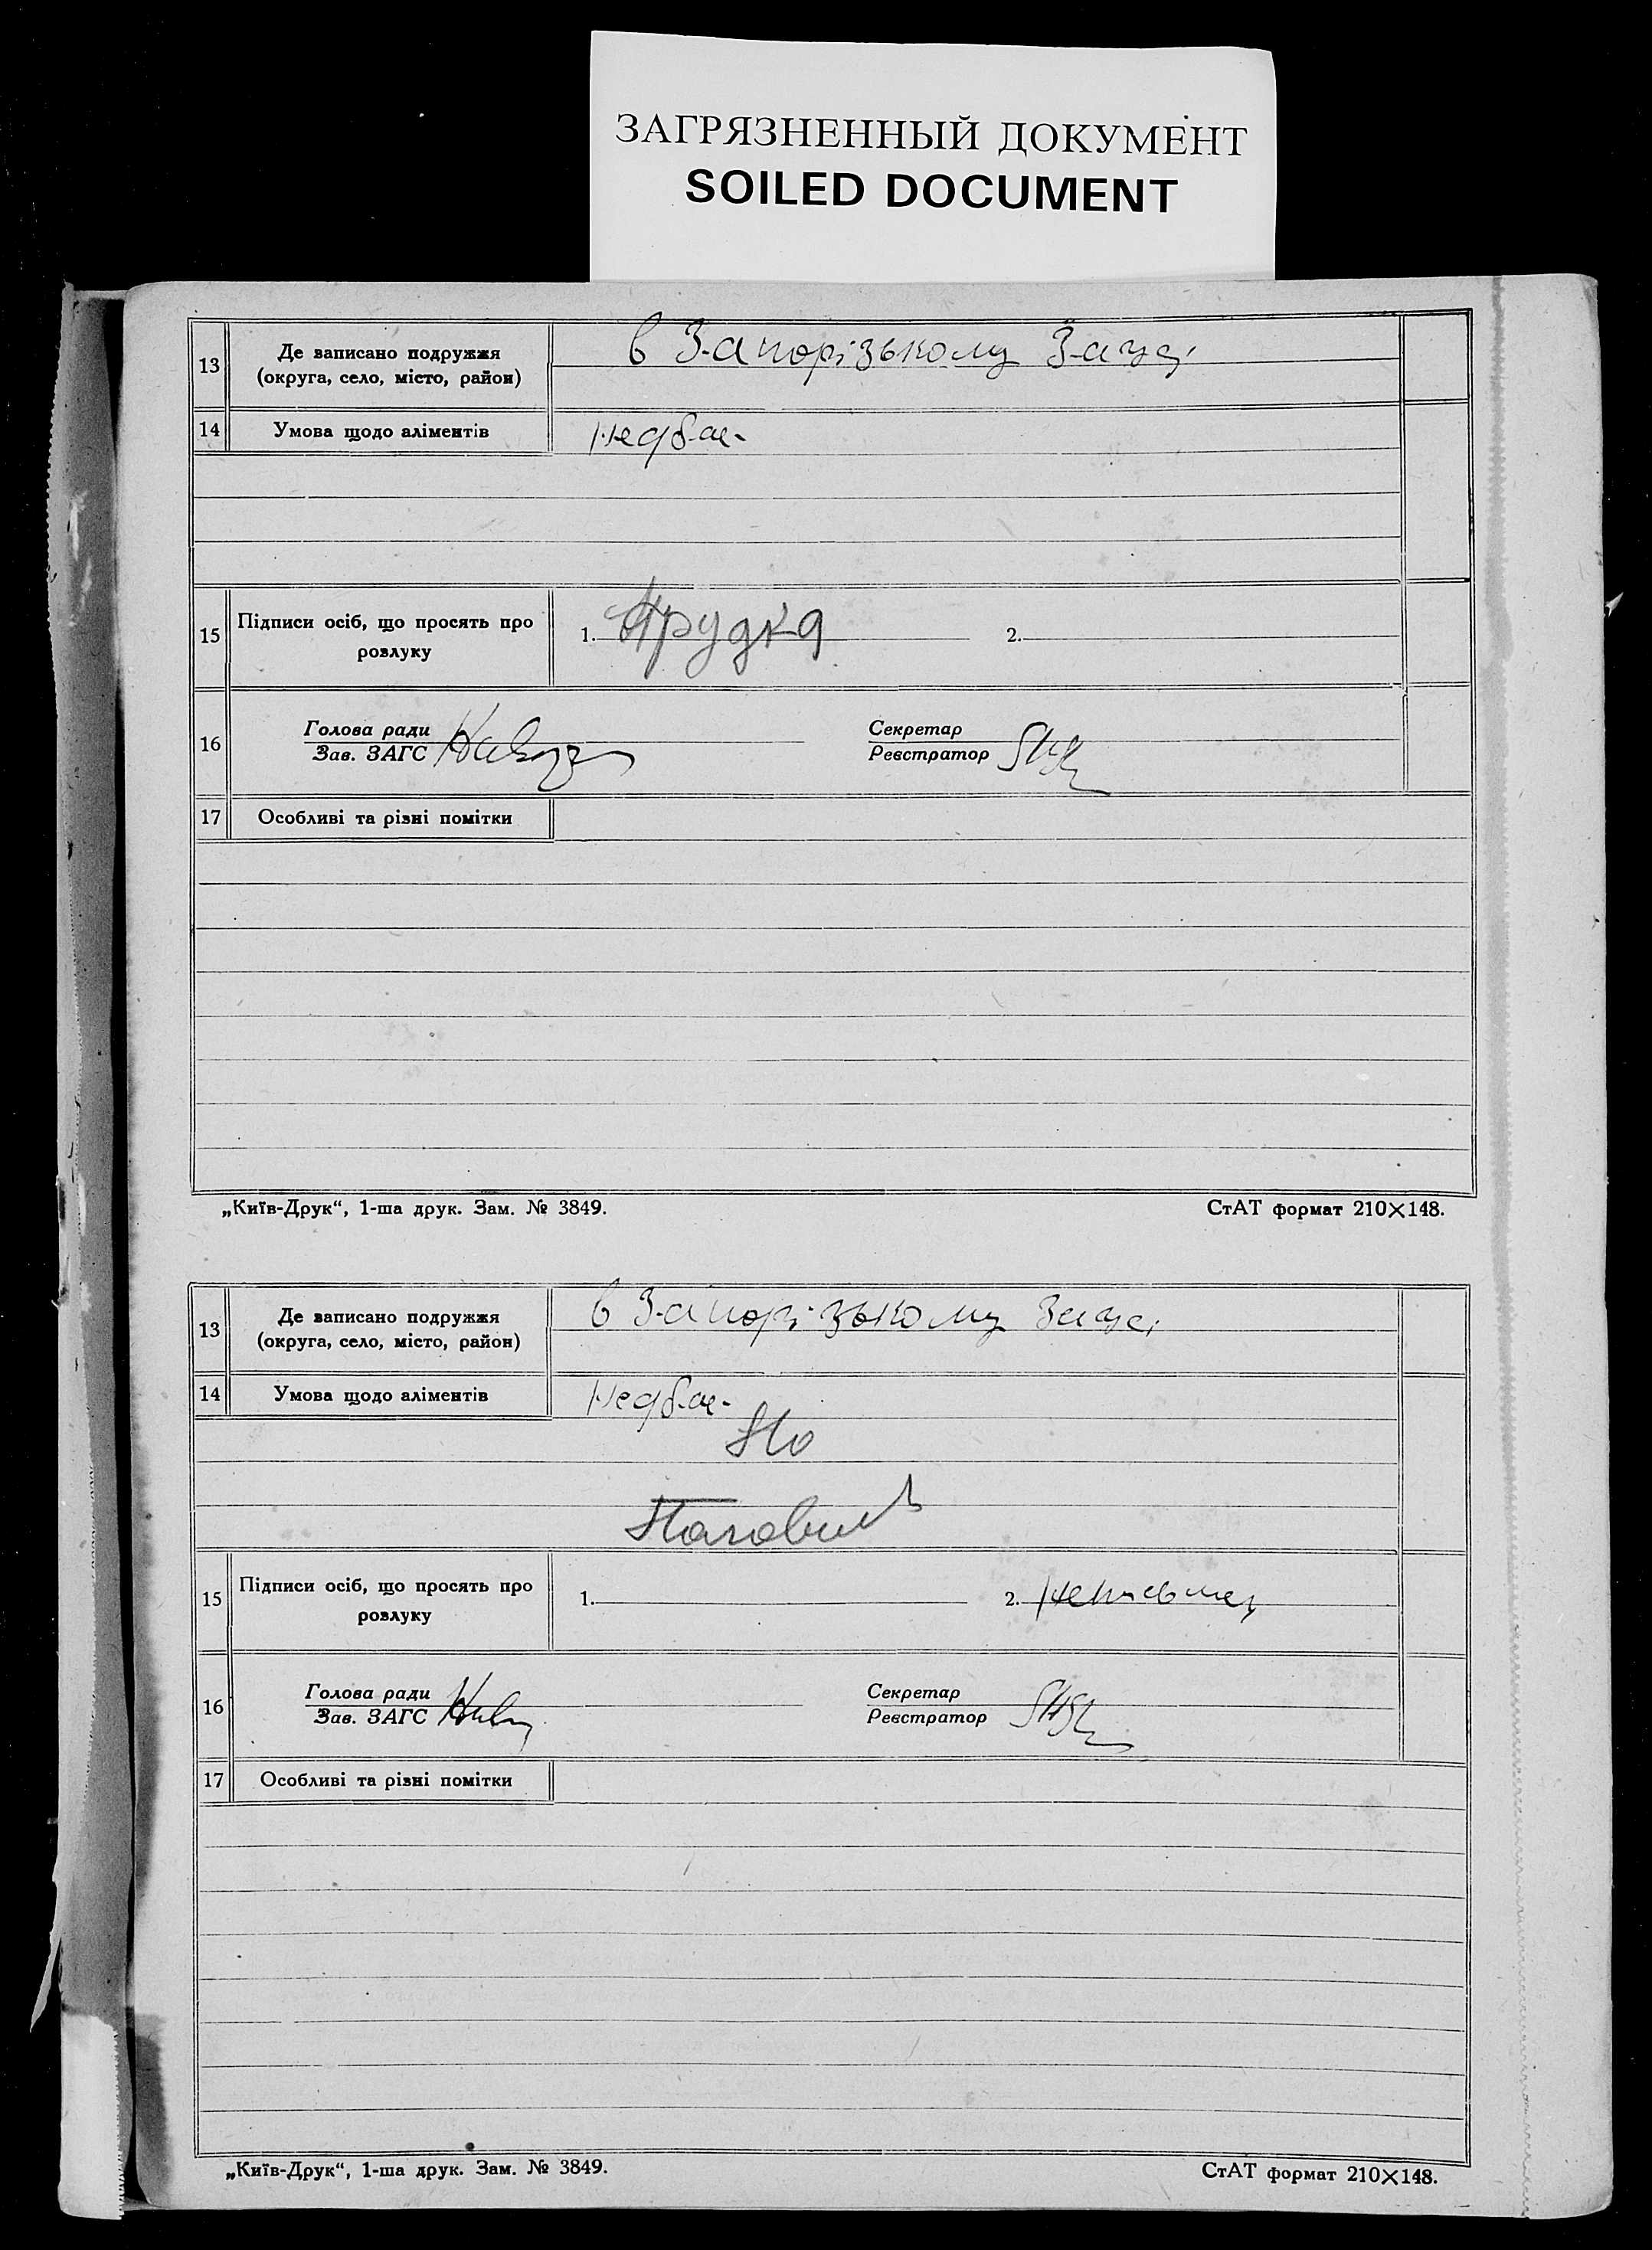 ЗАГРЯЗНЕННЫЙ ДОКУМЕНТ
SOILED DOCUMENT
13 Де записано подружжя
(округа, село, місто, район)
в Запорізькому Загсі
14 Умова щодо аліментів
15 Підписи осіб, що просять про
розлуку
1. 2.
16 Голова ради
Зав. ЗАГС
Секретар
Реєстратор
17 Особливі та різні помітки
„Київ-Друк“, 1-ша друк. Зам. № 3849. СтАТ формат 210×148.
13 Де записано подружжя
(округа, село, місто, район)
в Запорізькому Загсі
14 Умова щодо аліментів
15 Підписи осіб, що просять про
розлуку
1. 2.
16 Голова ради
Зав. ЗАГС
Секретар
Реєстратор
17 Особливі та різні помітки
„Київ-Друк“, 1-ша друк. Зам. № 3849. СтАТ формат 210×148.